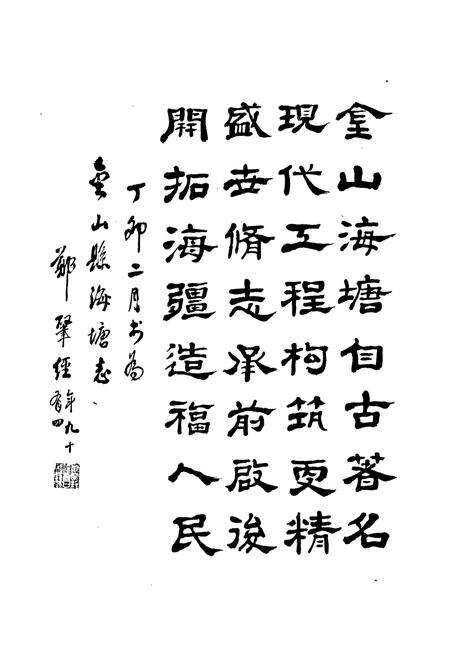 金山海塘自古著名
現代工程构筑更精
盛世脩志承前啟後
開拓海疆造福人民
丁卯二月书为
金山縣海塘志
鄭肇經年九十有四